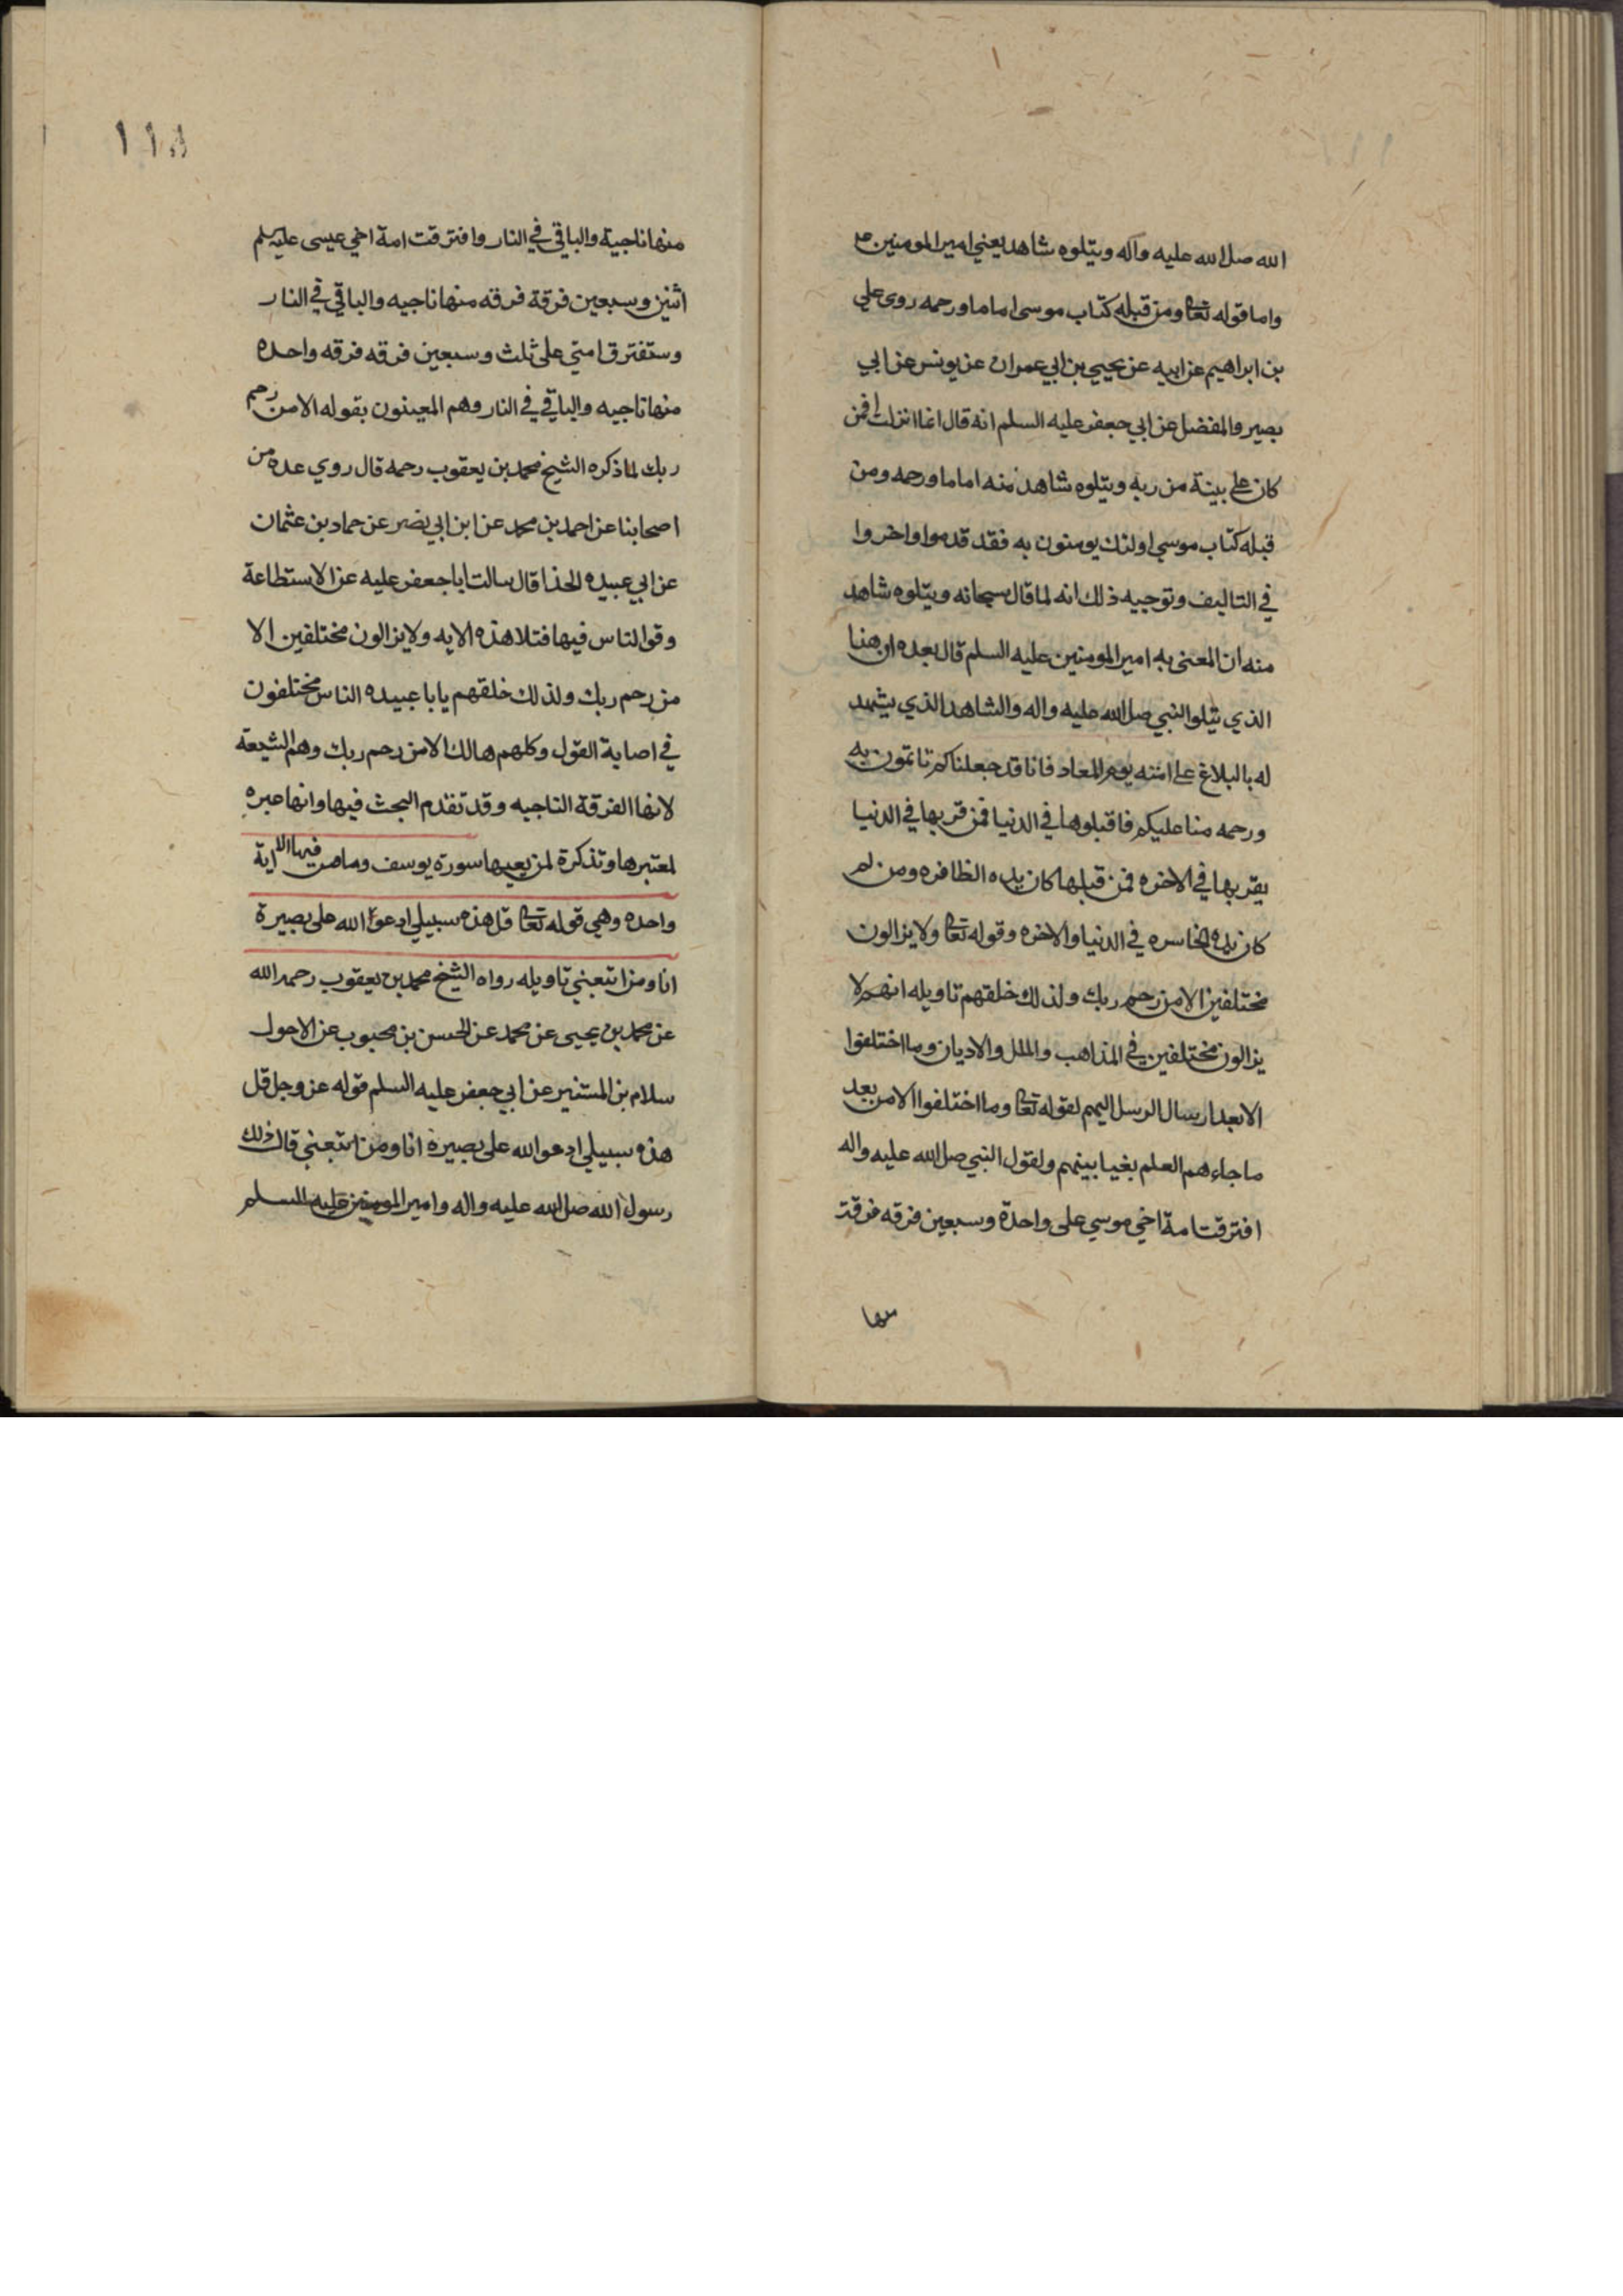 الله صلى الله عليه وآله ويتلوه شاهد يعني امير المومنين ع
واما قوله تعالى ومن قبله كتاب موسى اماما ورحمه روى علي
بن ابراهيم عن ابيه عن يحيى بن ابي عمران عن يونس عن ابي
بصير والمفضل عن ابي جعفر عليه السلم انه قال انما انزلت افمن
كان على بينة من ربه ويتلوه شاهد منه اماما ورحمه ومن
قبله كتاب موسى اولئك يومنون به فقد قدموا واخروا
في التاليف وتوجيه ذلك انه لما قال سبحانه ويتلوه شاهد
منه ان المعنى به امير المومنين عليه السلم قال بعده ان هذا
الذي يتلوا النبي صلى الله عليه واله والشاهد الذي يشهد
له بالبلاغ على امته يوم المعاد فانا قد جعلناكم تاتمون به
ورحمه منا عليكم فاقبلوها في الدنيا فمن قر بها في الدنيا
يقر بها في الاخره فمن قبلها كان يده الظافره ومن لم
كان يده الخاسره في الدنيا والاخره وقوله تعالى ولا يزالون
مختلفين الا من رحم ربك ولذلك خلقهم تاويله انهم لا
يزالون مختلفين في المذاهب والملل والاديان وما اختلفوا
الا بعد ارسال الرسل اليهم لقوله تعالى وما اختلفوا الا من بعد
ما جاءهم العلم بغيا بينهم ولقول النبي صلى الله عليه واله
افترقت امة اخي موسي على واحدة وسبعين فرقه فرقة
منها
١١٨
منها ناجية والباقي في النار وافترقت امة اخي عيسى عليه سلم
اثنين وسبعين فرقة فرقه منها ناجيه والباقي في النار
وستفترق امتي على ثلث وسبعين فرقه فرقه واحده
منها ناجيه والباقي في النار وهم المعينون بقوله الا من رحم
ربك لما ذكره الشيخ محمد بن يعقوب رحمه قال روي عده من
اصحابنا عن احمد بن محمد عن ابن ابي نصر عن حماد بن عثمان
عن ابي عبيده الحذا قال سالت ابا جعفر عليه عن الاستطاعة
وقوا لناس فيها فتلا هذه الايه ولا يزالون مختلفين الا
من رحم ربك ولذلك خلقهم يا با عبيده الناس مختلفون
في اصابة القول وكلهم هالك الا من رحم ربك وهم الشيعة
لانها الفرقة الناجيه وقد تقدم البحث فيها وانها عبره
لمعتبرها وتذكرة لمن يعيها سورة يوسف وما فيها الاية
واحده وهي قوله تعالى قل هذه سبيلي ادعوا الله على بصيرة
انا ومن اتبعني تاويله رواه الشيخ محمد بن يعقوب رحمه الله
عن محمد بن يحيى عن محمد عن الحسن بن محبوب عن الاحول
سلام بن المستنير عن ابي جعفر عليه السلم قوله عز وجل قل
هذه سبيلي ادعوا الله على بصيرة انا ومن اتبعني قال ذلك
رسول الله صلى الله عليه واله وامير المومنين عليه السلم